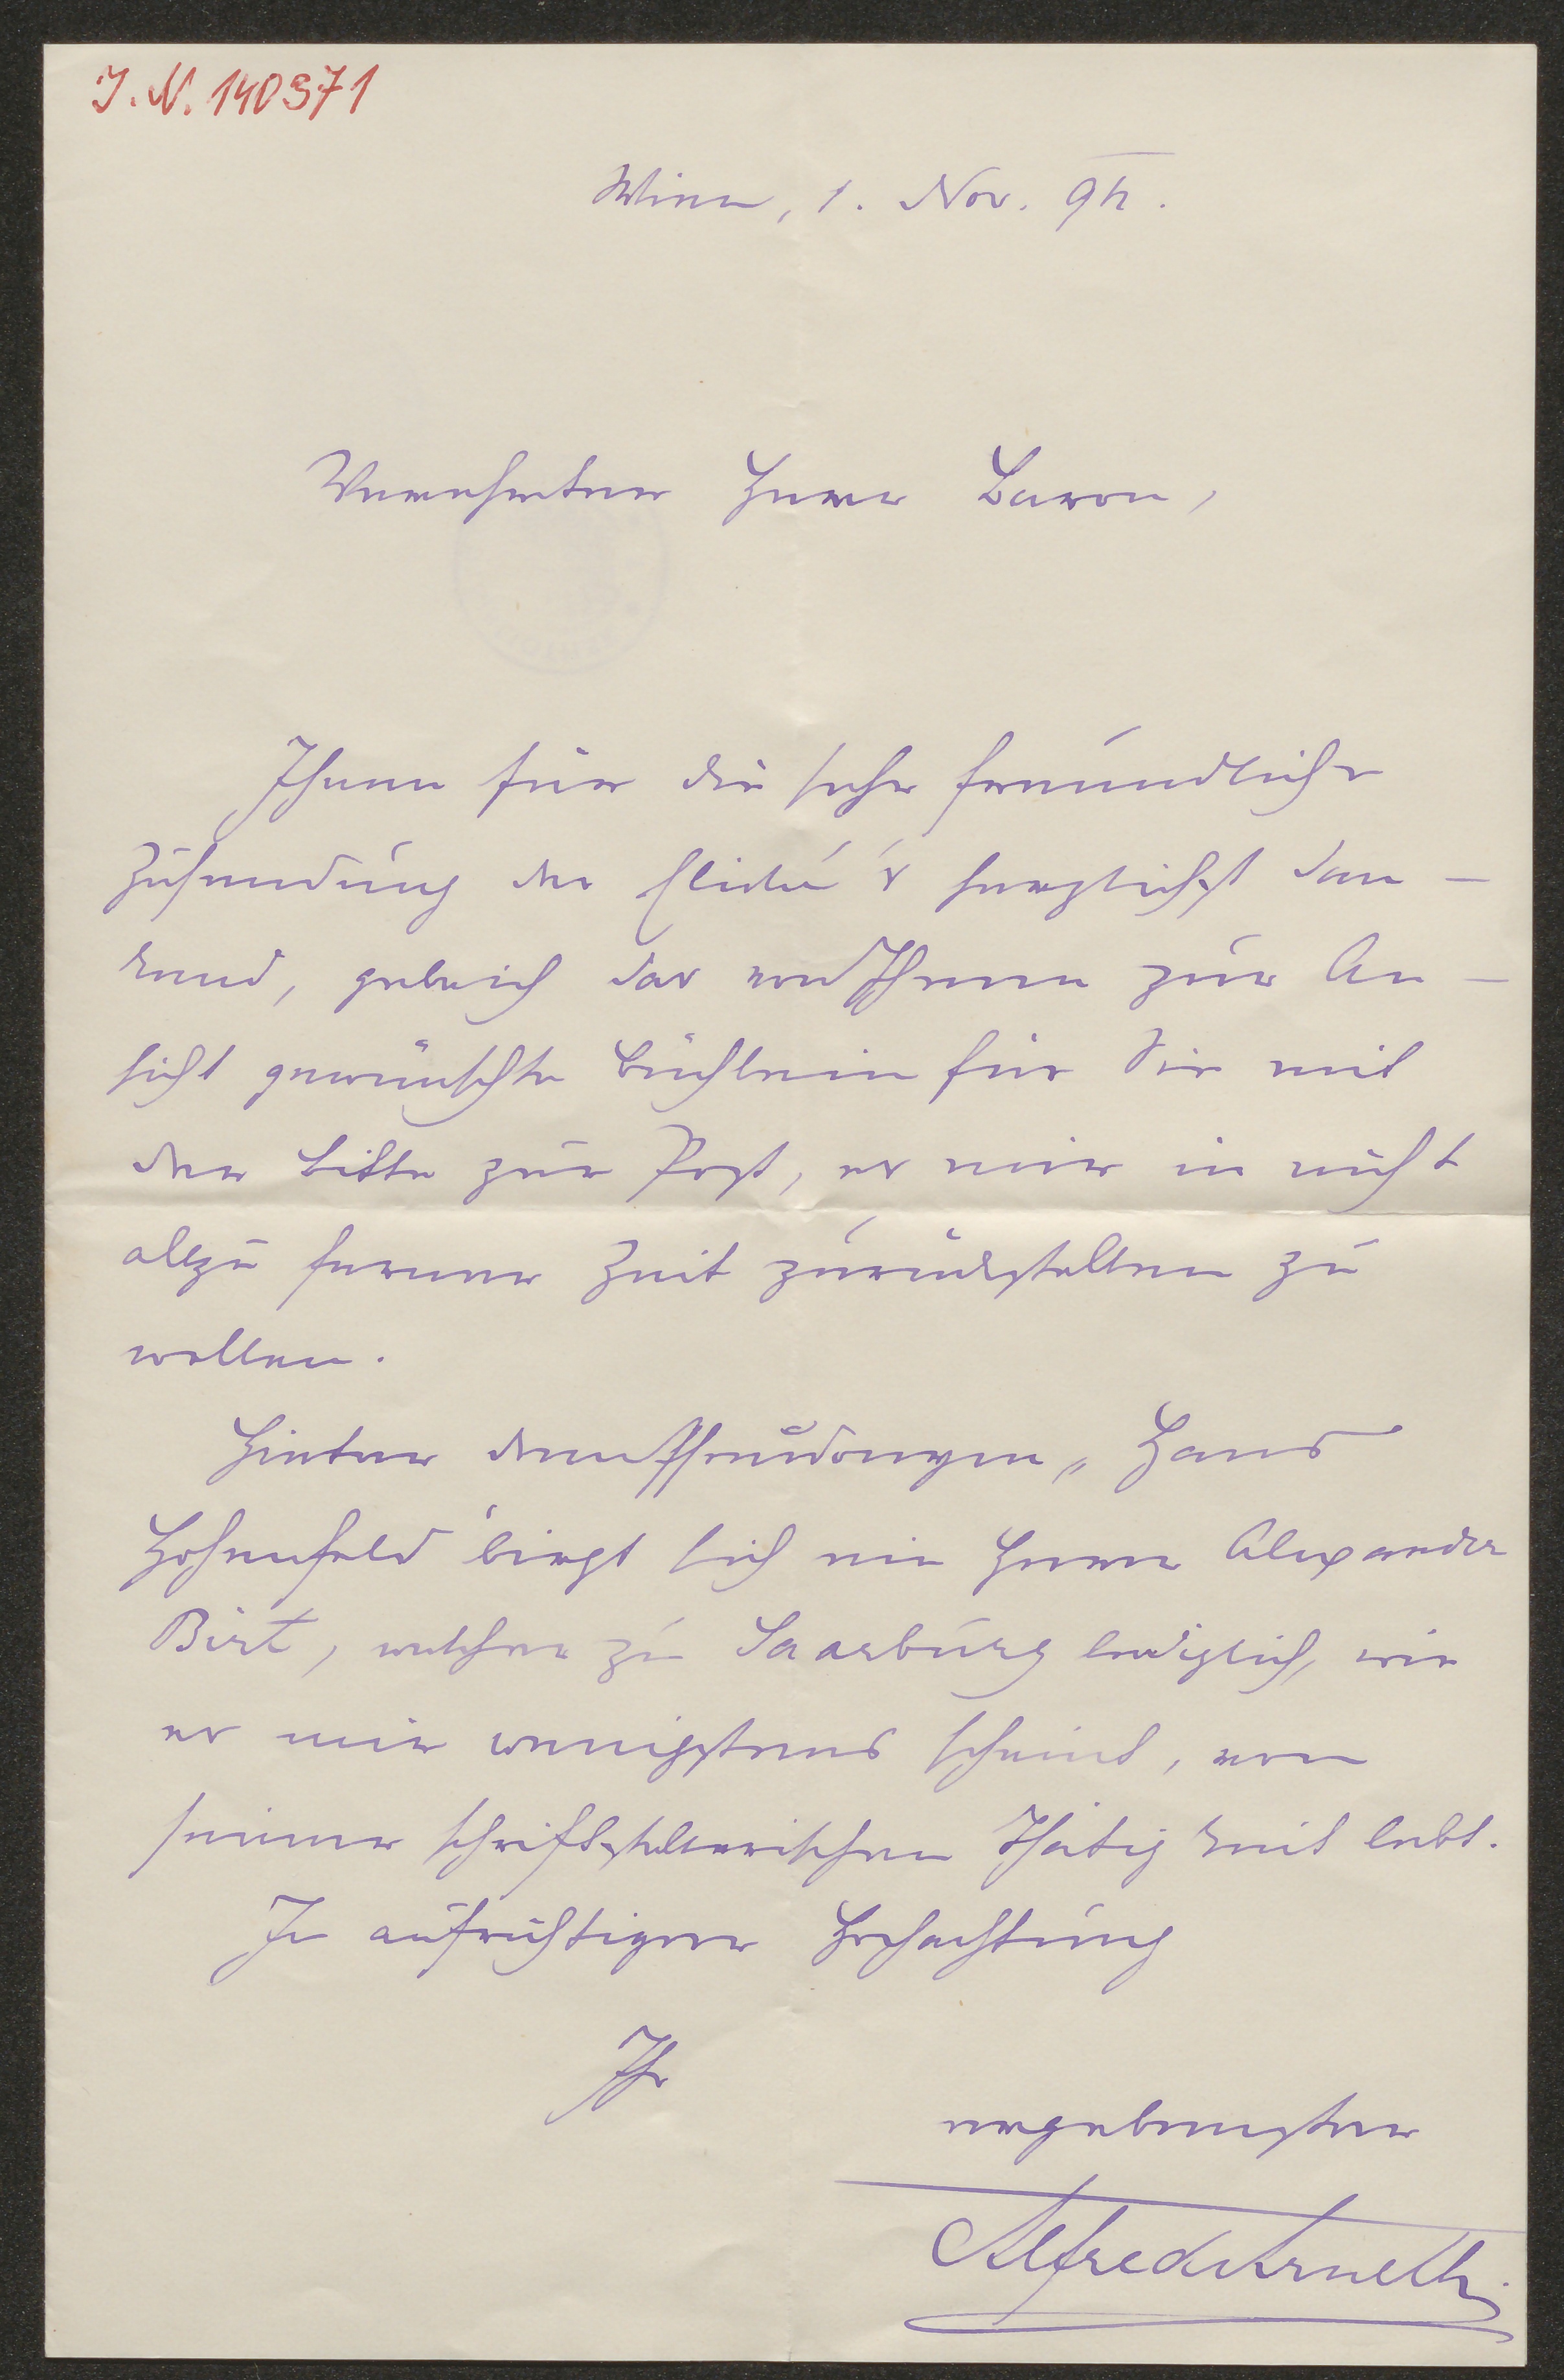 J. N. 140971
Wien, 1. Nov. 95.
Verehrter Herr Baron,
Ihnen für die sehr freundliche
Zusendung der Cliché's herzlichst dan-
kend, geb' ich das von Ihnen zur An-
sicht gewünschte Büchlein für Sie mit
der Bitte zur Post, es mir in nicht
allzu ferner Zeit zurückstellen zu
wollen.
Hinter dem Pseudonym „Hans
Hohenfeld" birgt sich ein Herr Alexander
Birt, welcher zu Saarburg lediglich, wie
es mir wenigstens scheint, von
seiner schriftstellerischen Thätigkeit lebt.
In aufrichtiger Hochachtung
Ihr
ergebenster
Alfred Arneth.